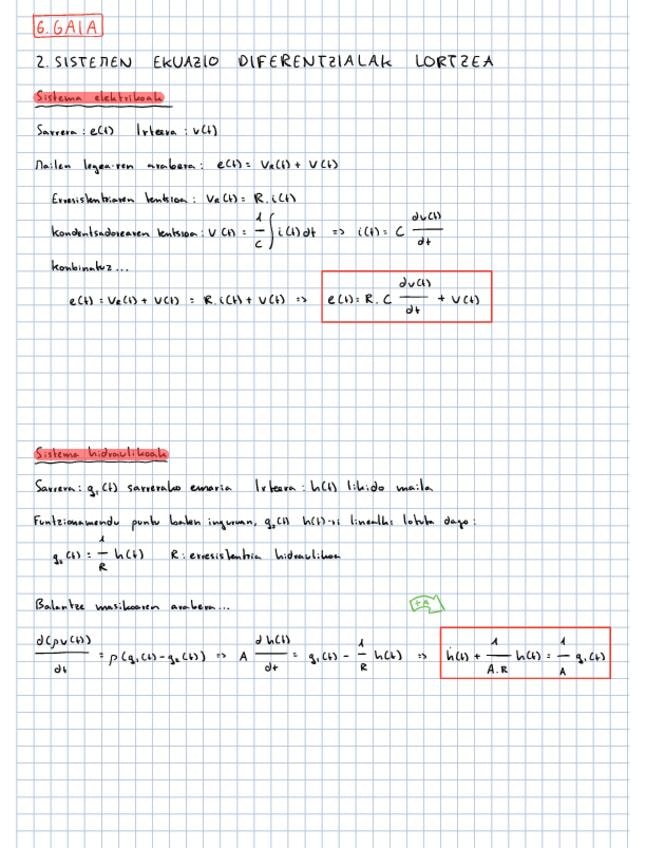 6. GAIA
2. SISTEMEN EKUAZIO DIFERENTZIALAK LORTZEA
Sistema elektrikoak
Sarrera: e(t) Irteera: v(t)
Mailen legearen arabera: e(t) = V_R(t) + V(t)
Erresistentziaren tentsioa: V_R(t) = R.i(t)
Kondentsadorearen tentsioa: V(t) = 1/C ∫ i(t) dt => i(t) = C dv(t)/dt
Konbinatuz...
e(t) = V_R(t) + V(t) = R.i(t) + V(t) => e(t) = R.C dv(t)/dt + V(t)
Sistema hidraulikoak
Sarrera: q₁(t) sarrerako emaria Irteera: h(t) likido maila
Funtzionamendu puntu baten inguruan, q₂(t) h(t)-ri linealki lotuta dago:
q₂(t) = 1/R h(t) R: erresistentzia hidraulikoa
Balantze masikoaren arabera...
÷A
d(ρv(t))/dt = ρ(q₁(t) - q₂(t)) => A dh(t)/dt = q₁(t) - 1/R h(t) => ḣ(t) + 1/A.R h(t) = 1/A q₁(t)